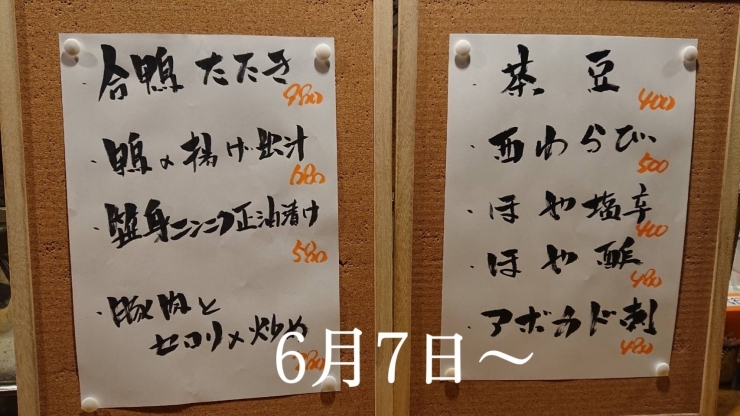 合鴨たたき
980
・鴨の揚げ出汁
680
・鮭身ニンニク正油漬け
580
・豚肉と
セロリの炒め
茶豆
400
・西わらび
500
・ほや塩辛
400
・ほや酢
480
・アボカド刺
480
6月7日〜